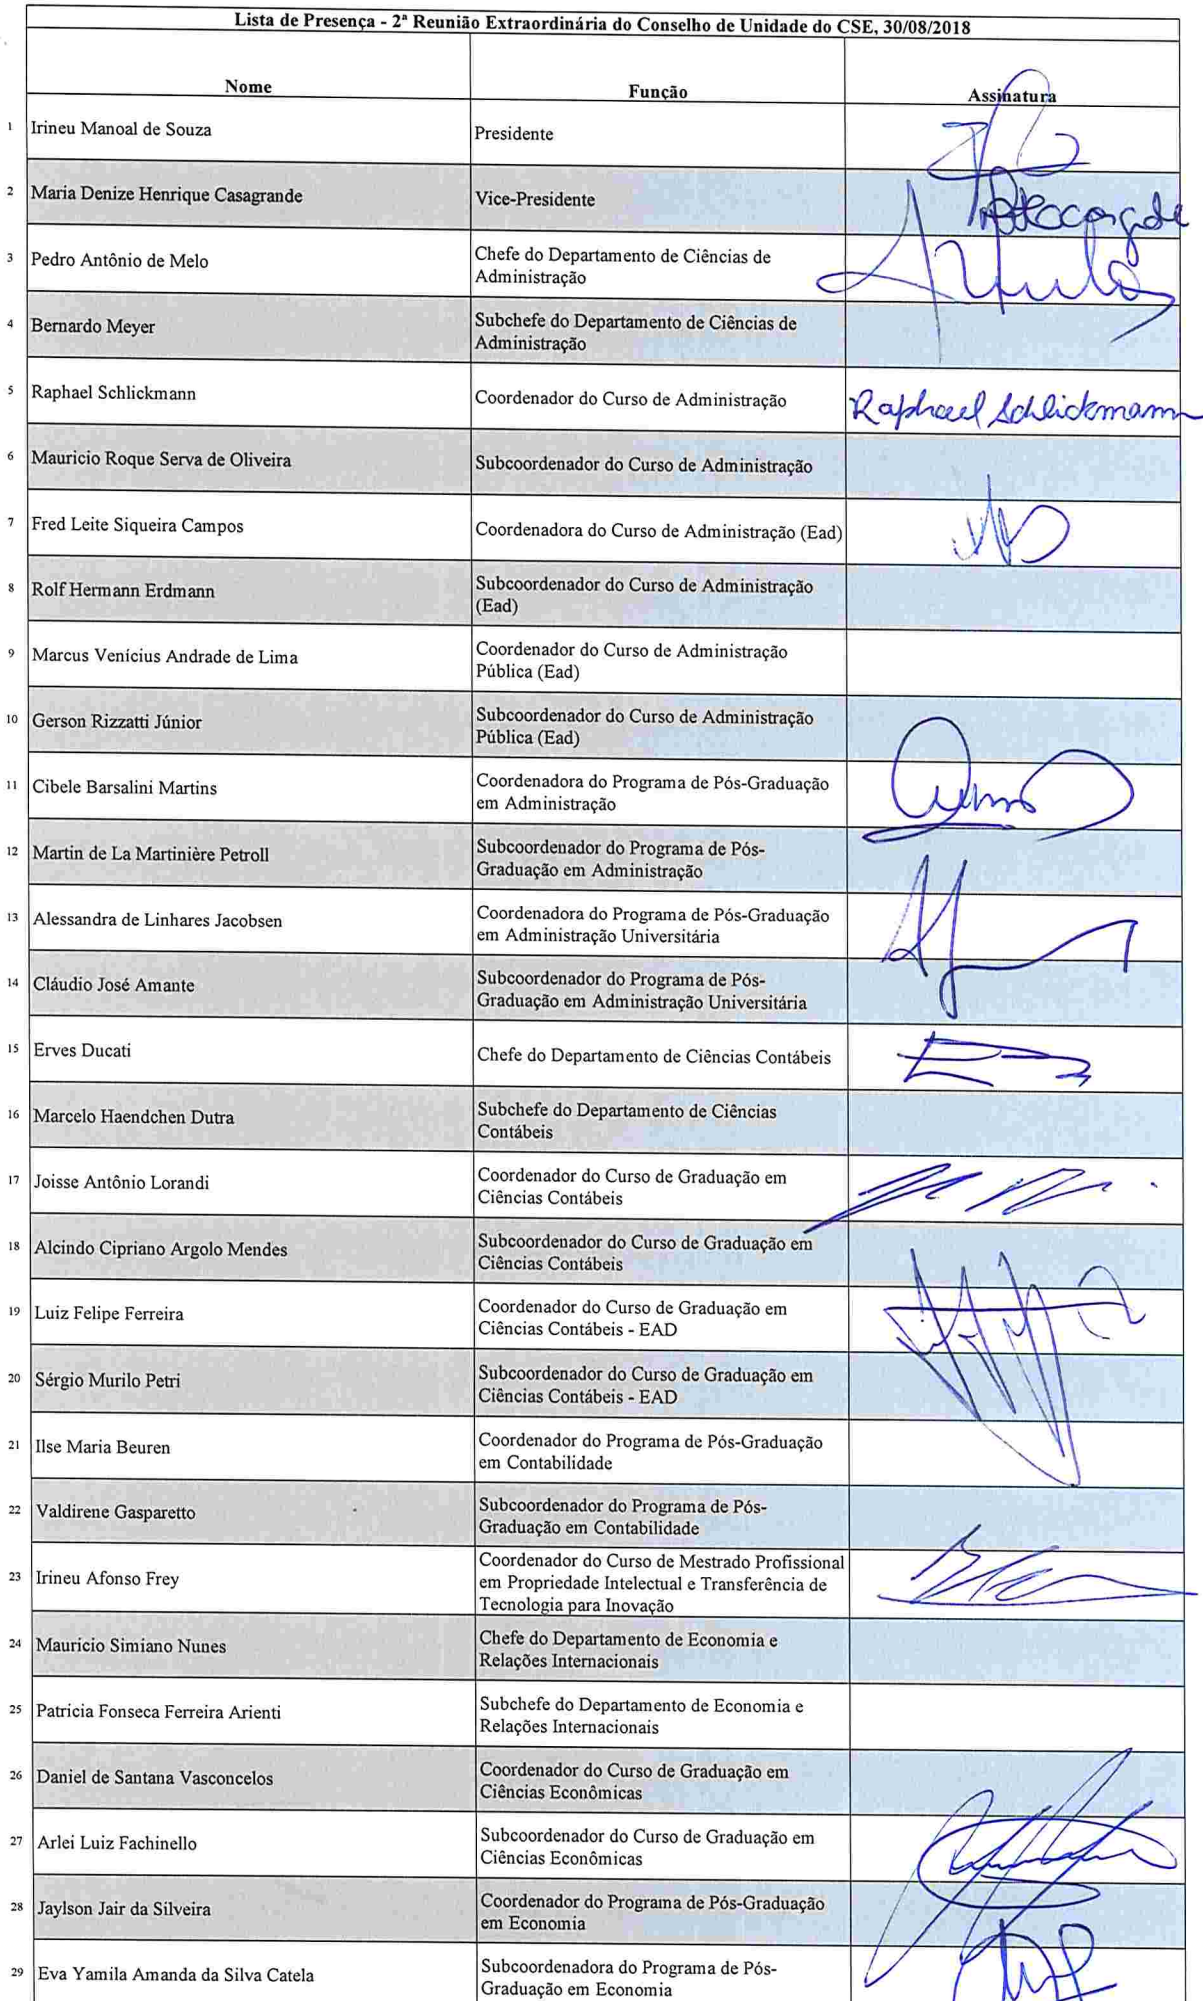 Lista de Presença - 2ª Reunião Extraordinária do Conselho de Unidade do CSE, 30/08/2018
Nome Função Assinatura
1 Irineu Manoal de Souza Presidente
2 Maria Denize Henrique Casagrande Vice-Presidente
3 Pedro Antônio de Melo Chefe do Departamento de Ciências de
Administração
4 Bernardo Meyer Subchefe do Departamento de Ciências de
Administração
5 Raphael Schlickmann Coordenador do Curso de Administração Raphael Schlickmann
6 Mauricio Roque Serva de Oliveira Subcoordenador do Curso de Administração
7 Fred Leite Siqueira Campos Coordenadora do Curso de Administração (Ead)
8 Rolf Hermann Erdmann Subcoordenador do Curso de Administração
(Ead)
9 Marcus Venícius Andrade de Lima Coordenador do Curso de Administração
Pública (Ead)
10 Gerson Rizzatti Júnior Subcoordenador do Curso de Administração
Pública (Ead)
11 Cibele Barsalini Martins Coordenadora do Programa de Pós-Graduação
em Administração
12 Martin de La Martinière Petroll Subcoordenador do Programa de Pós-
Graduação em Administração
13 Alessandra de Linhares Jacobsen Coordenadora do Programa de Pós-Graduação
em Administração Universitária
14 Cláudio José Amante Subcoordenador do Programa de Pós-
Graduação em Administração Universitária
15 Erves Ducati Chefe do Departamento de Ciências Contábeis
16 Marcelo Haendchen Dutra Subchefe do Departamento de Ciências
Contábeis
17 Joisse Antônio Lorandi Coordenador do Curso de Graduação em
Ciências Contábeis
18 Alcindo Cipriano Argolo Mendes Subcoordenador do Curso de Graduação em
Ciências Contábeis
19 Luiz Felipe Ferreira Coordenador do Curso de Graduação em
Ciências Contábeis - EAD
20 Sérgio Murilo Petri Subcoordenador do Curso de Graduação em
Ciências Contábeis - EAD
21 Ilse Maria Beuren Coordenador do Programa de Pós-Graduação
em Contabilidade
22 Valdirene Gasparetto Subcoordenador do Programa de Pós-
Graduação em Contabilidade
23 Irineu Afonso Frey Coordenador do Curso de Mestrado Profissional
em Propriedade Intelectual e Transferência de
Tecnologia para Inovação
24 Mauricio Simiano Nunes Chefe do Departamento de Economia e
Relações Internacionais
25 Patrícia Fonseca Ferreira Arienti Subchefe do Departamento de Economia e
Relações Internacionais
26 Daniel de Santana Vasconcelos Coordenador do Curso de Graduação em
Ciências Econômicas
27 Arlei Luiz Fachinello Subcoordenador do Curso de Graduação em
Ciências Econômicas
28 Jaylson Jair da Silveira Coordenador do Programa de Pós-Graduação
em Economia
29 Eva Yamila Amanda da Silva Catela Subcoordenadora do Programa de Pós-
Graduação em Economia